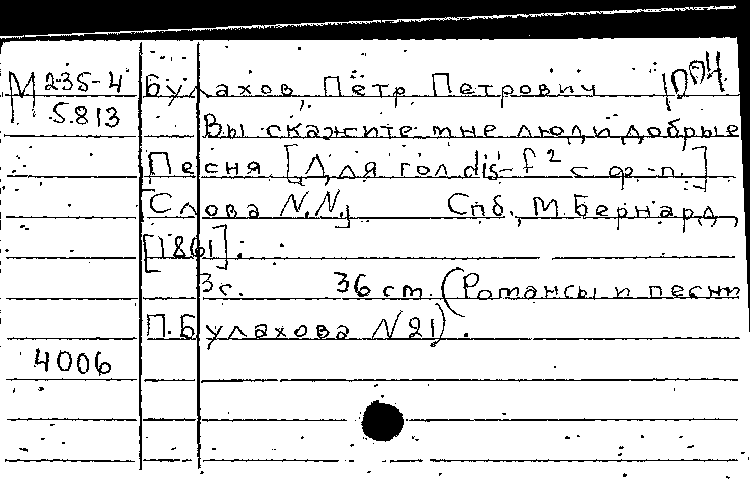 М 235-4 Булахов, Пётр Петрович 1004
5813 Вы скажите мне люди добрые
Песня [Для гол. dis-f² с ф.-п.]
[Слова N.N.] Спб., М. Бернард,
[1861].
3 с. 36 см. (Романсы и песни
П. Булахова N 21).
4006